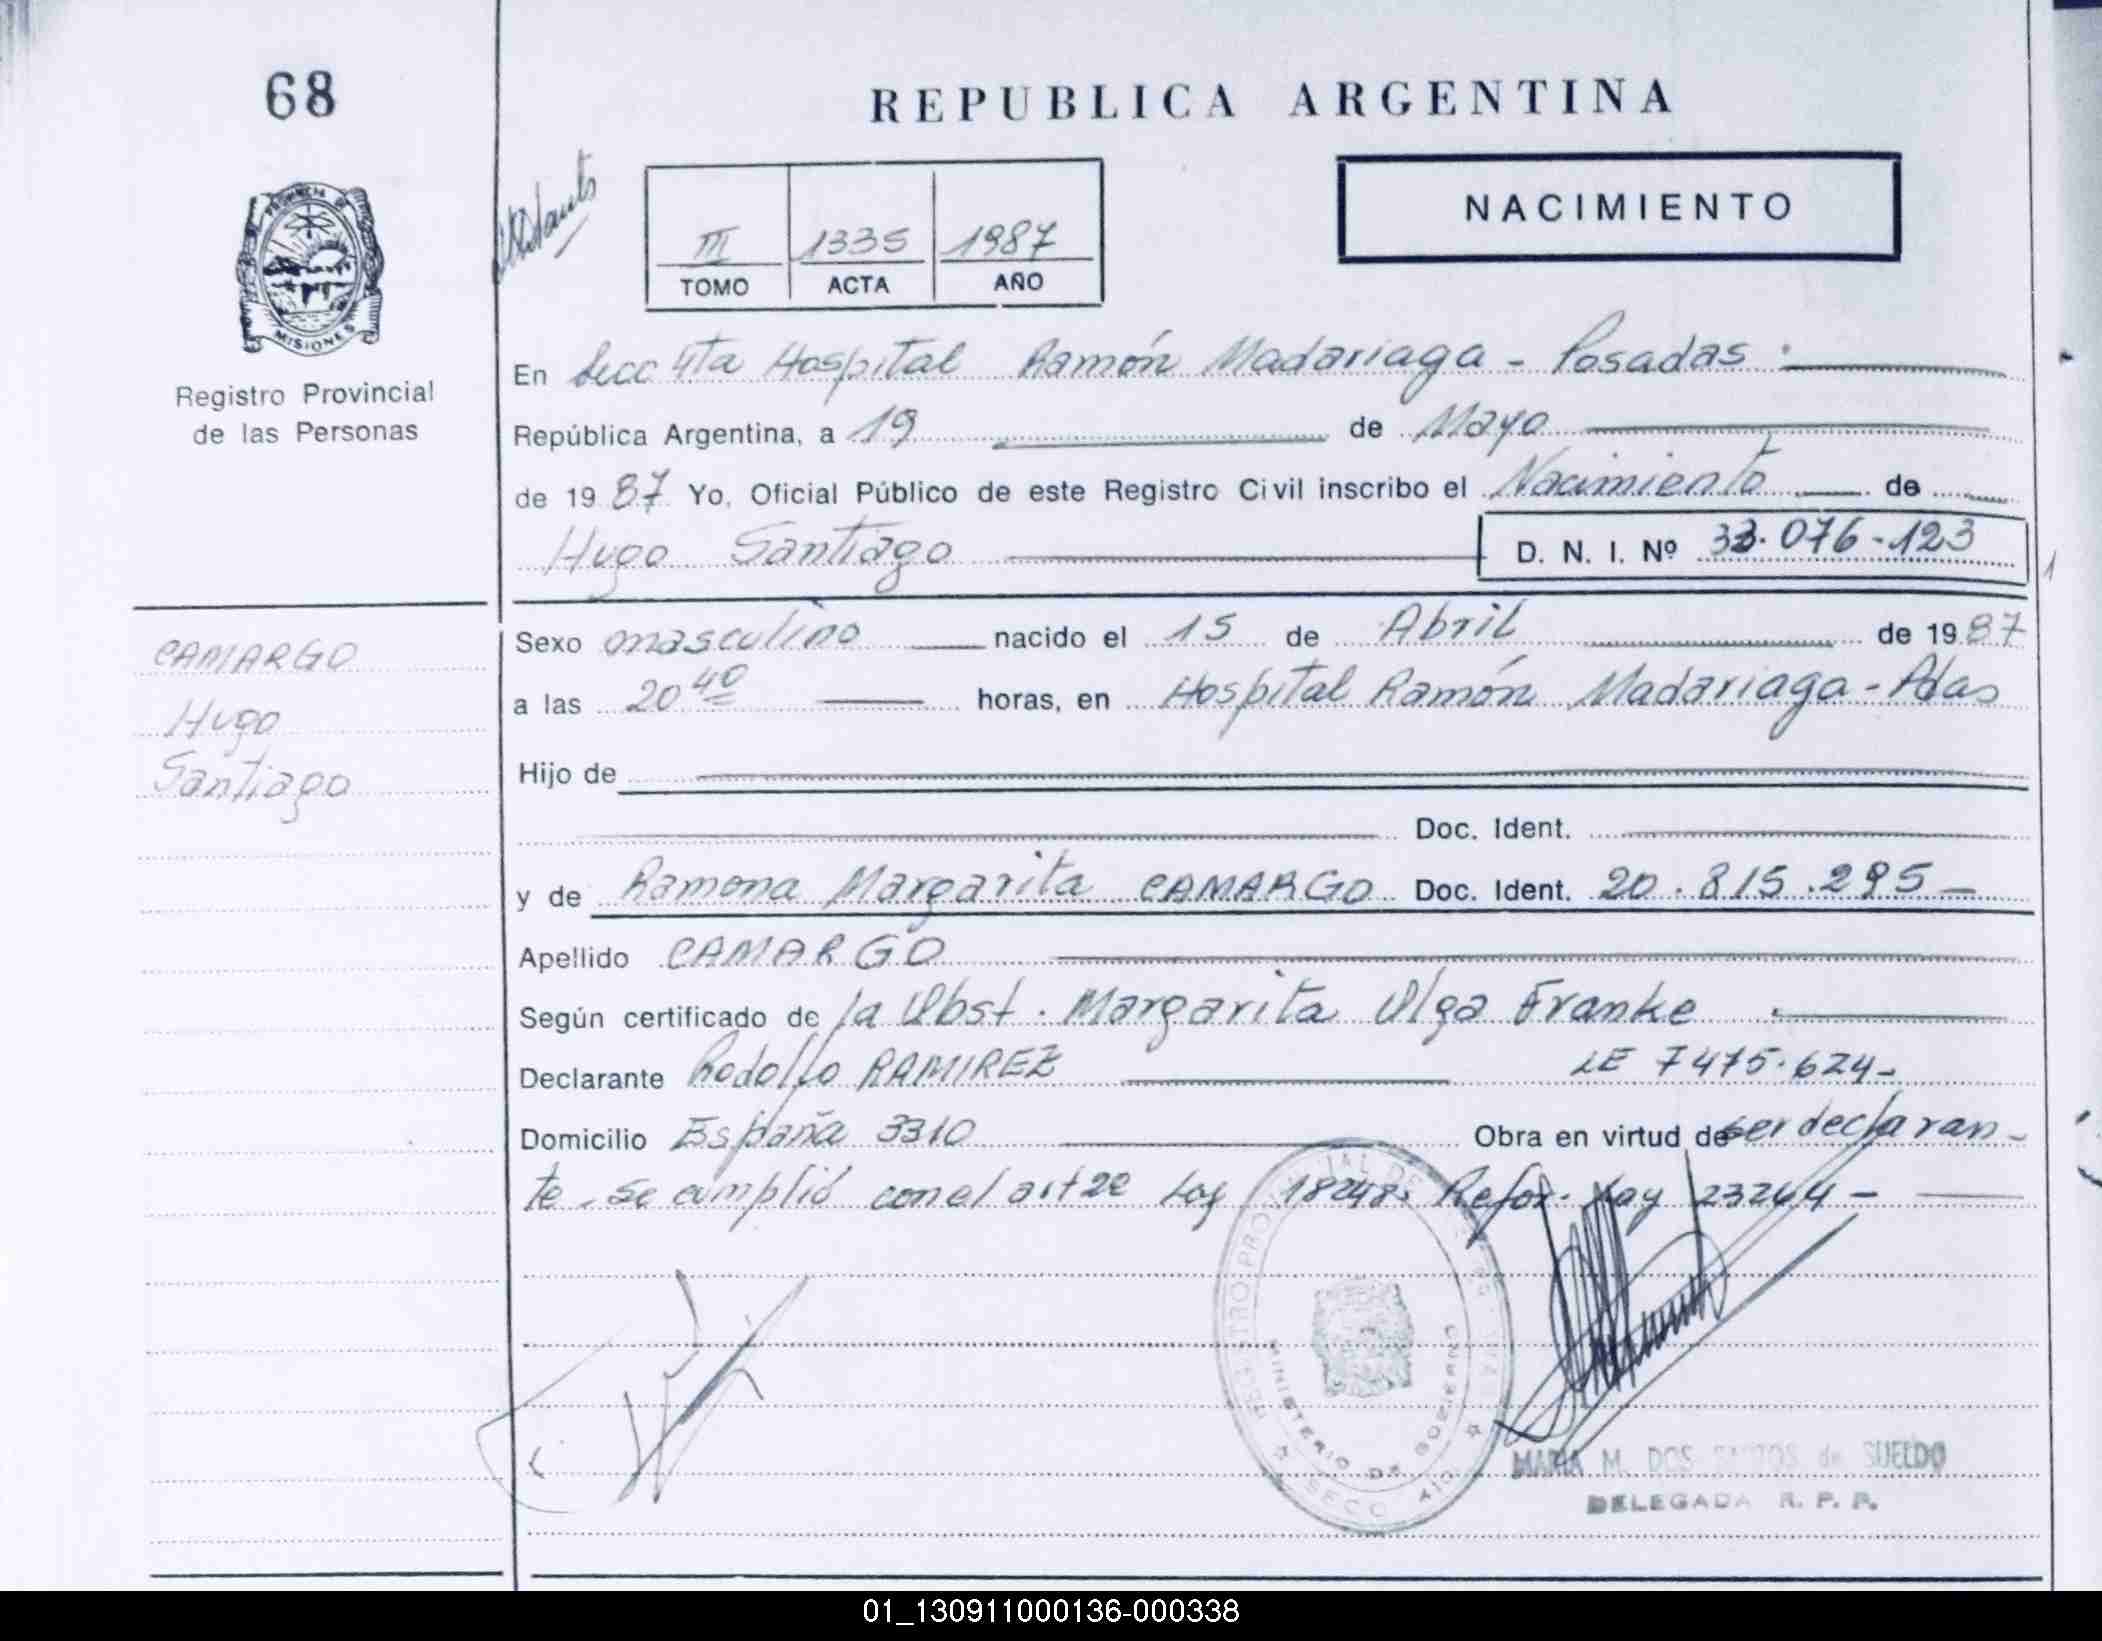 68
REPUBLICA ARGENTINA
NACIMIENTO
III 1335 1987
TOMO ACTA AÑO
PROVINCIA DE
MISIONES
Registro Provincial
de las Personas
En Secc 4ta Hospital Ramón Madariaga - Posadas
República Argentina, a 19 de Mayo
de 1987 Yo, Oficial Público de este Registro Civil inscribo el Nacimiento de
Hugo Santiago D. N. I. Nº 33.076-123
CAMARGO
Hugo
Santiago
Sexo masculino nacido el 15 de Abril de 1987
a las 20 40 horas, en Hospital Ramón Madariaga - Pdas
Hijo de
Doc. Ident.
y de Ramona Margarita CAMARGO Doc. Ident. 20.815.295
Apellido CAMARGO
Según certificado de la Obst. Margarita Olga Franke
Declarante Rodolfo RAMIREZ LE 7475.624-
Domicilio España 3310 Obra en virtud de ser declaran-
te - se cumplió con el art 2º Ley 18248. Refor. Ley 23264 -
REGISTRO PROVINCIAL DE LAS
MINISTERIO DE GOBIERNO
SECC 4ta
MARIA M. DOS SANTOS de SUELDO
DELEGADA R. P. P.
01_130911000136-000338